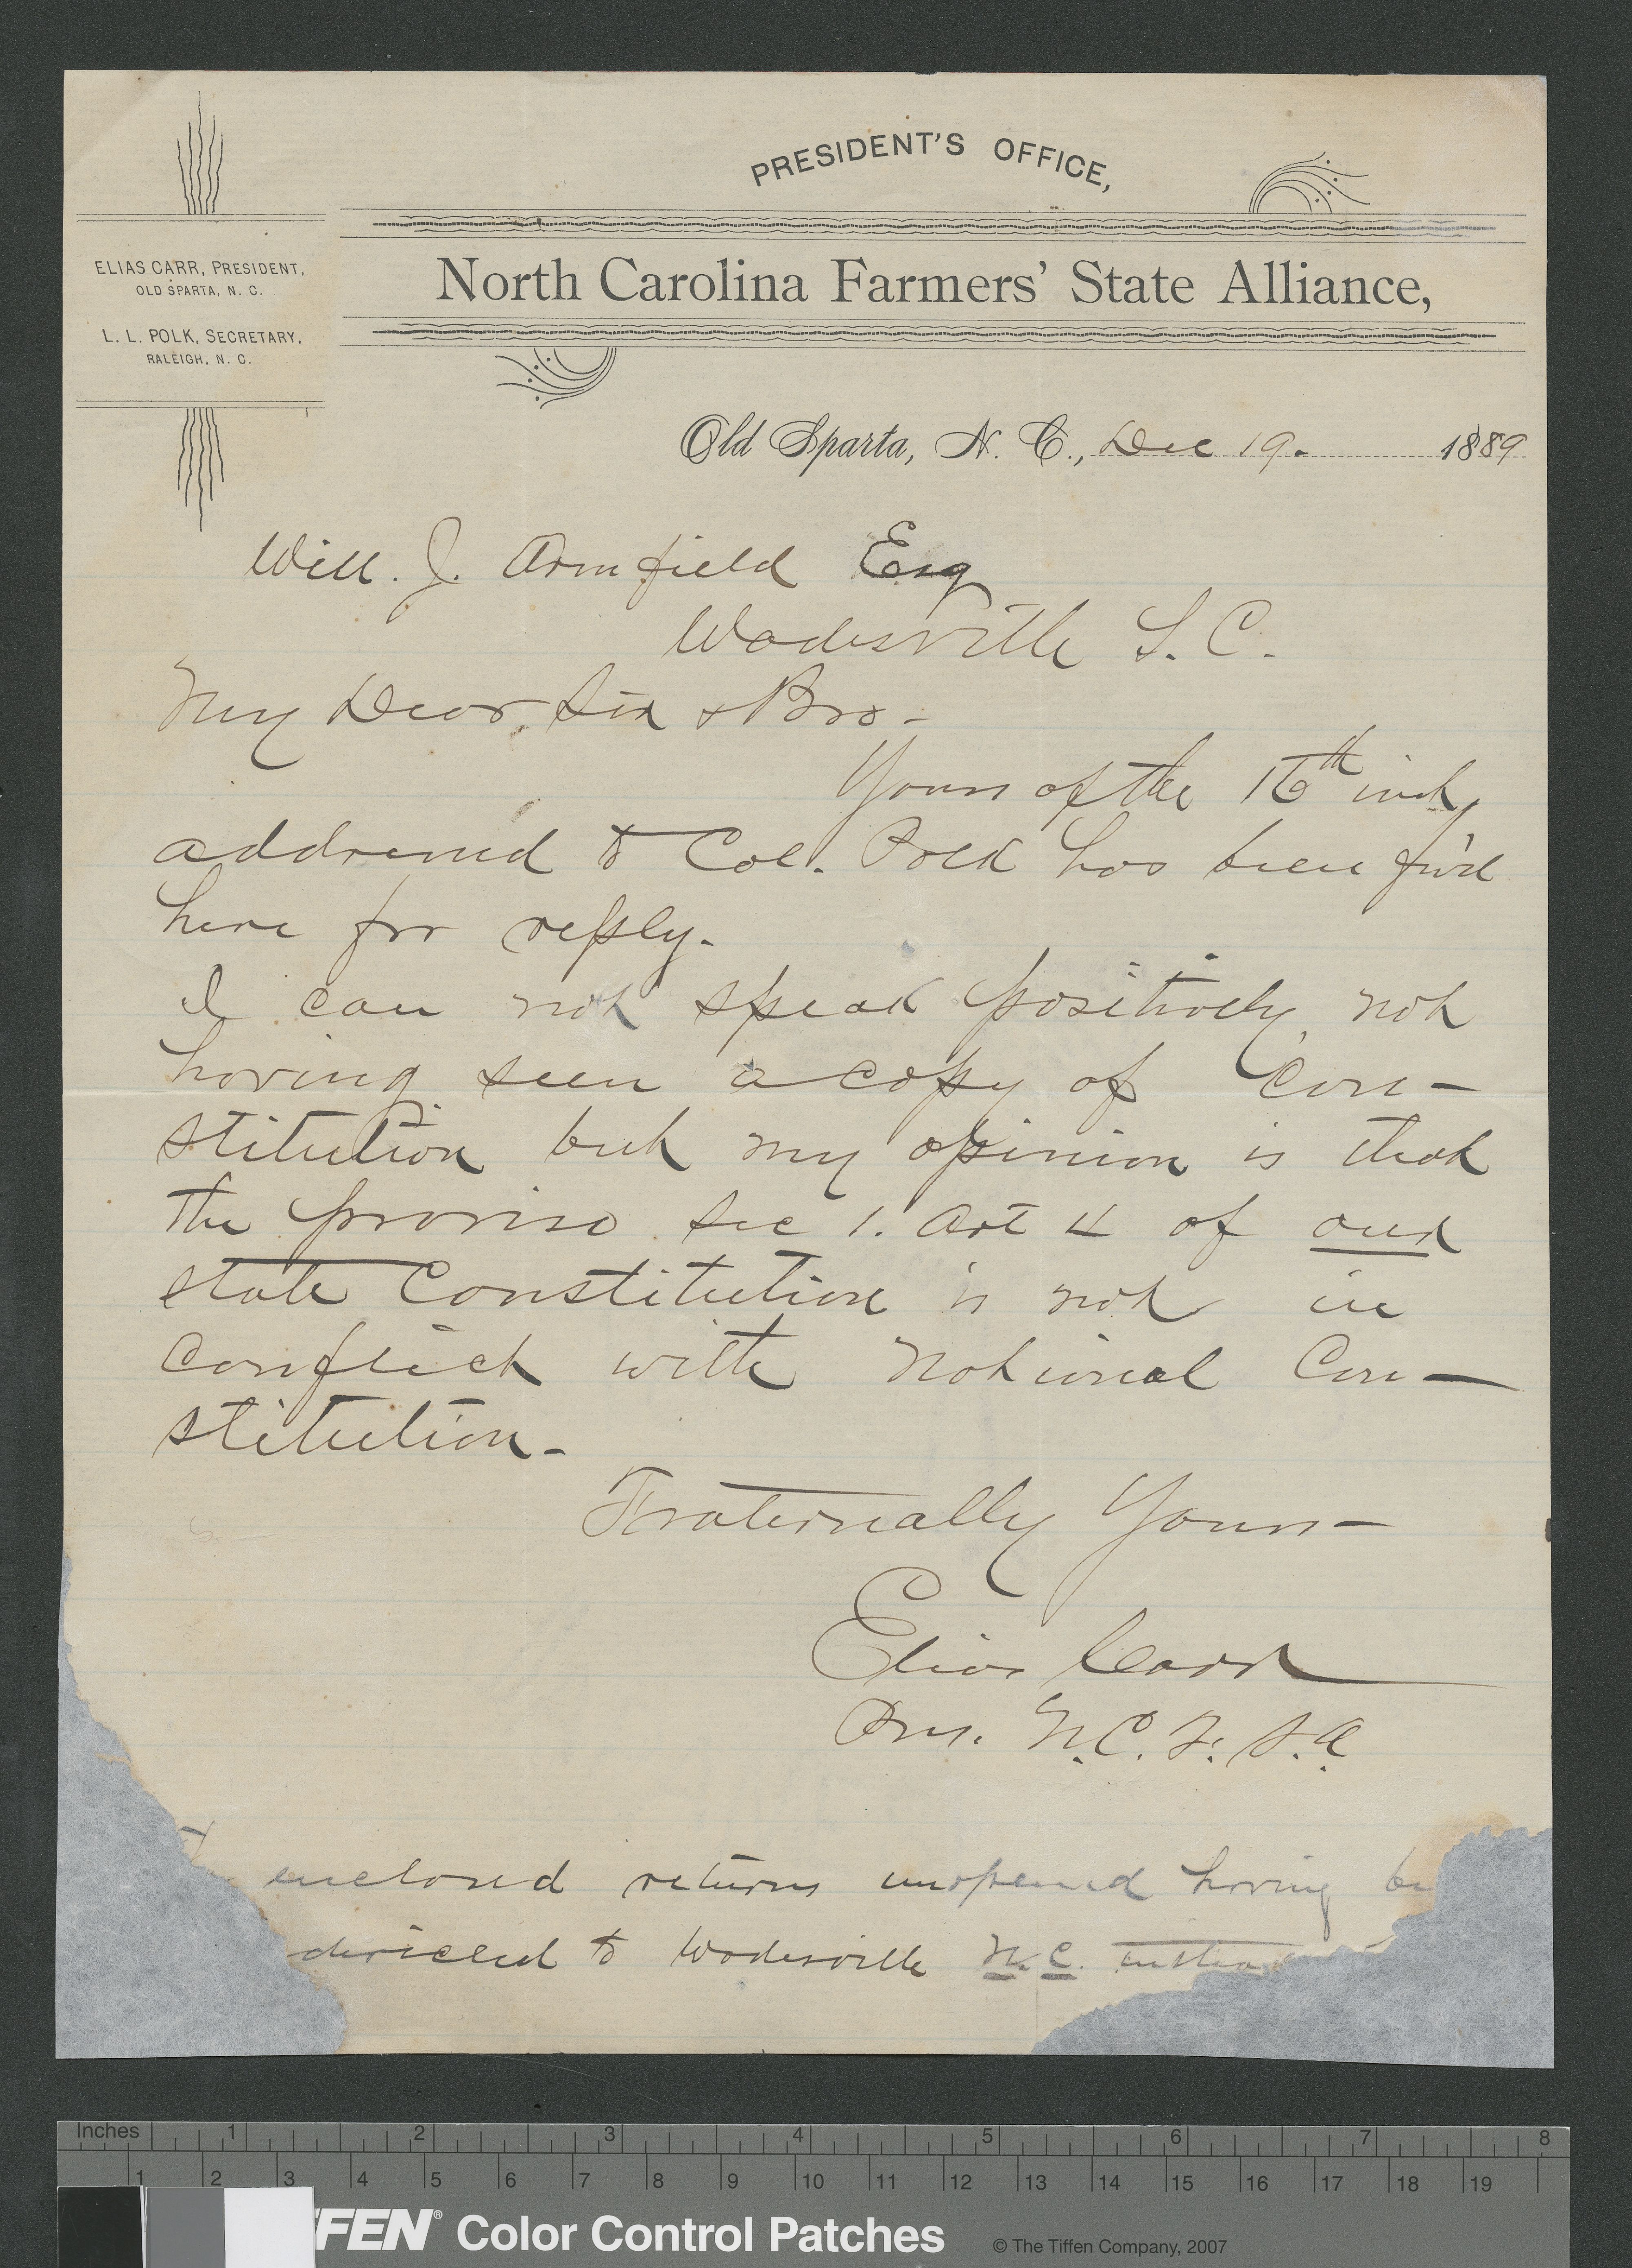 PRESIDENT'S OFFICE,
North Carolina Farmers' State Alliance,
ELIAS CARR, PRESIDENT,
OLD SPARTA, N. C.
L. L. POLK, SECRETARY,
RALEIGH, N. C.
Old Sparta, N. C., Dec 19. 1889
Will. J. Armfield Esq
Wadesville S. C.
My Dear Sir & Bro-
Yours of the 16th inst,
addressed to Col. Polk has been fw'd
here for reply.
I can not speak positively, not
having seen a copy of Con-
stitution but my opinion is that
the proviso Sec 1. Art 4 of our
state Constitution is not in
conflict with National Con-
stitution-
Fraternally Yours-
Elias Carr
Pres. N.C. F. S. A.
enclosed returns unopened having be
directed to Wadesville N.C. instea
Inches 1 2 3 4 5 6 7 8
1 2 3 4 5 6 7 8 9 10 11 12 13 14 15 16 17 18 19
FFEN® Color Control Patches © The Tiffen Company, 2007